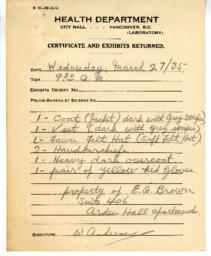 HEALTH DEPARTMENT
CITY HALL VANCOUVER, B.C.
(LABORATORY)
CERTIFICATE AND EXHIBITS RETURNED.
DATE Wednesday, March 27/35
TIME 9:30 a.m.
EXHIBITS RECEIPT NO.
POLICE BUREAU OF SCIENCE NO.
1 - Coat (Jacket) dark with Grey Stripes
1 - Vest (dark with Grey stripes)
1 - Fawn Felt Hat (Soft Felt Hat)
2 - Handkerchiefs
1 - Heavy dark overcoat
1 - pair of Yellow Kid Gloves
property of E.A. Brown
Suite 406
Arden Hall apartments
SIGNATURE W Anderson